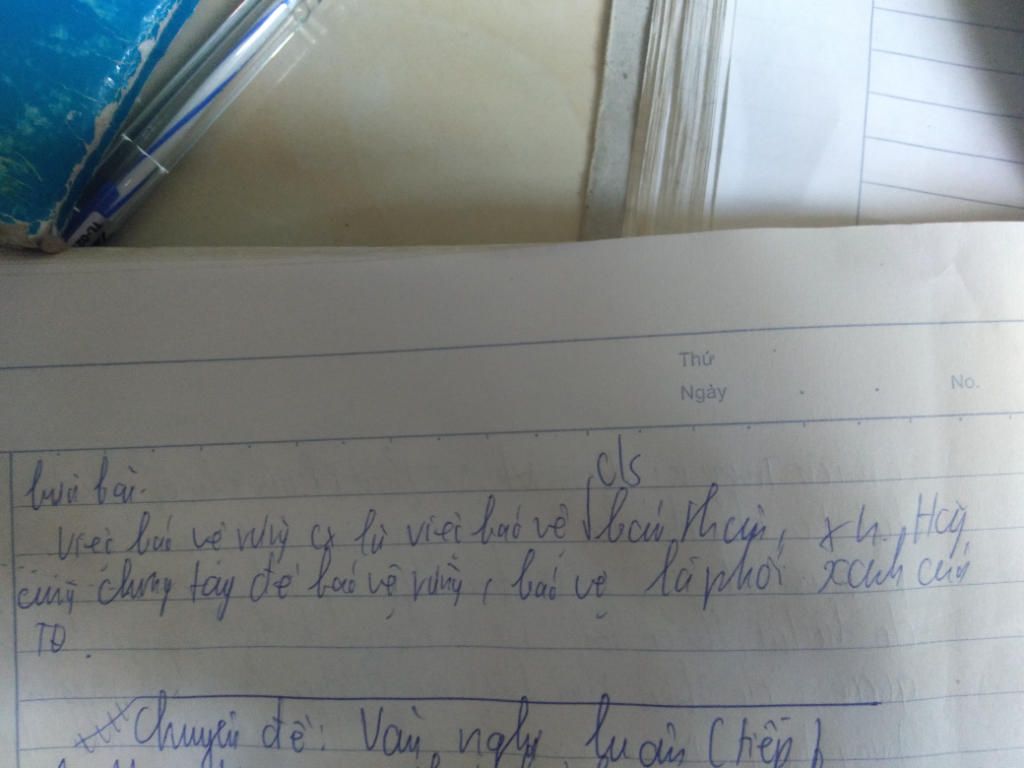 Thứ
Ngày
No.
bài.
cls
Việc bảo vệ rừng cx là việc bảo vệ bản thân, xh. Hãy
cùng chung tay để bảo vệ rừng, bảo vệ lá phổi xanh của
TĐ.
Chuyên đề: Văn nghị luận (tiếp)